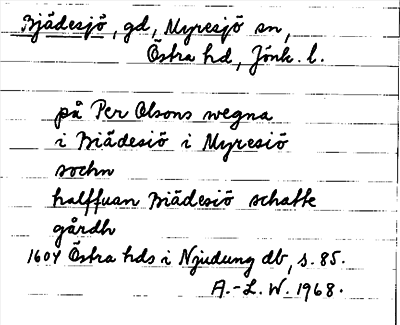 Bjädesjö, gd, Myresjö sn,
Östra hd, Jönk. l.
på Per Olsons wegna
i Biädesiö i Myresiö
sochn
halffuan Biädesiö schatte
gårdh
1604 Östra hds i Njudung db, s. 85.
A.-L. W. 1968.